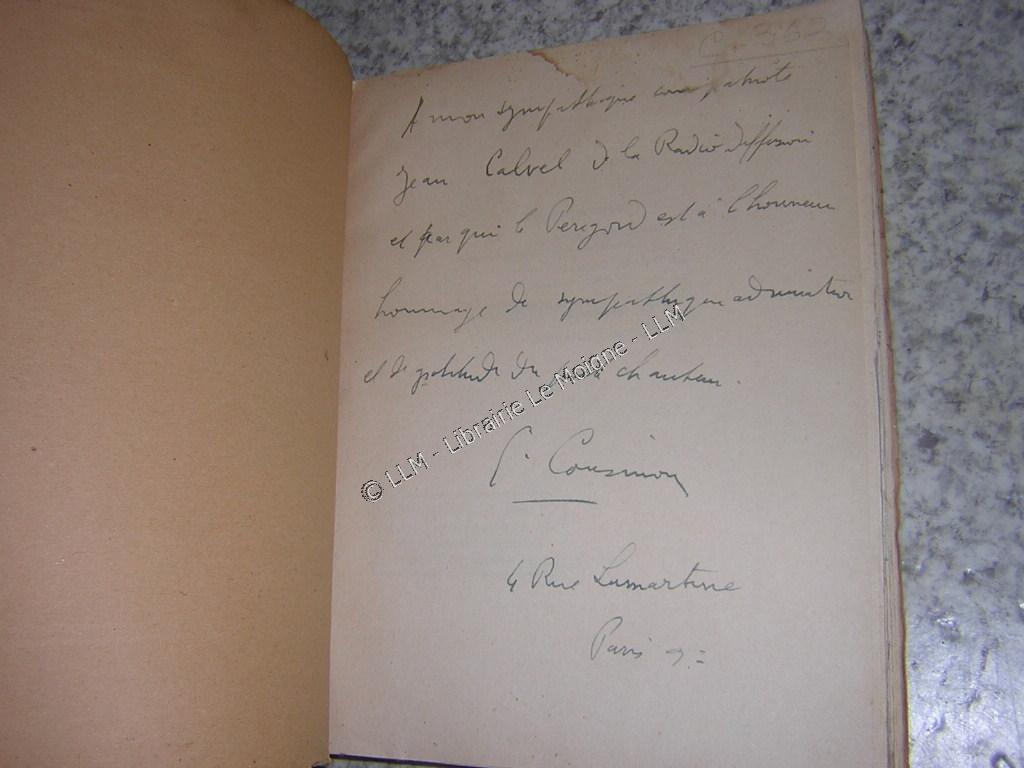 C. 353
A mon sympathique compatriote
Jean Calvel de la Radio diffusion
et par qui le Perigord est à l'honneur
hommage de sympathique admiration
et de gratitude du chanteur.
Cousinou
4 Rue Lamartine
Paris 9.
© LLM - Librairie Le Moigne - LLM